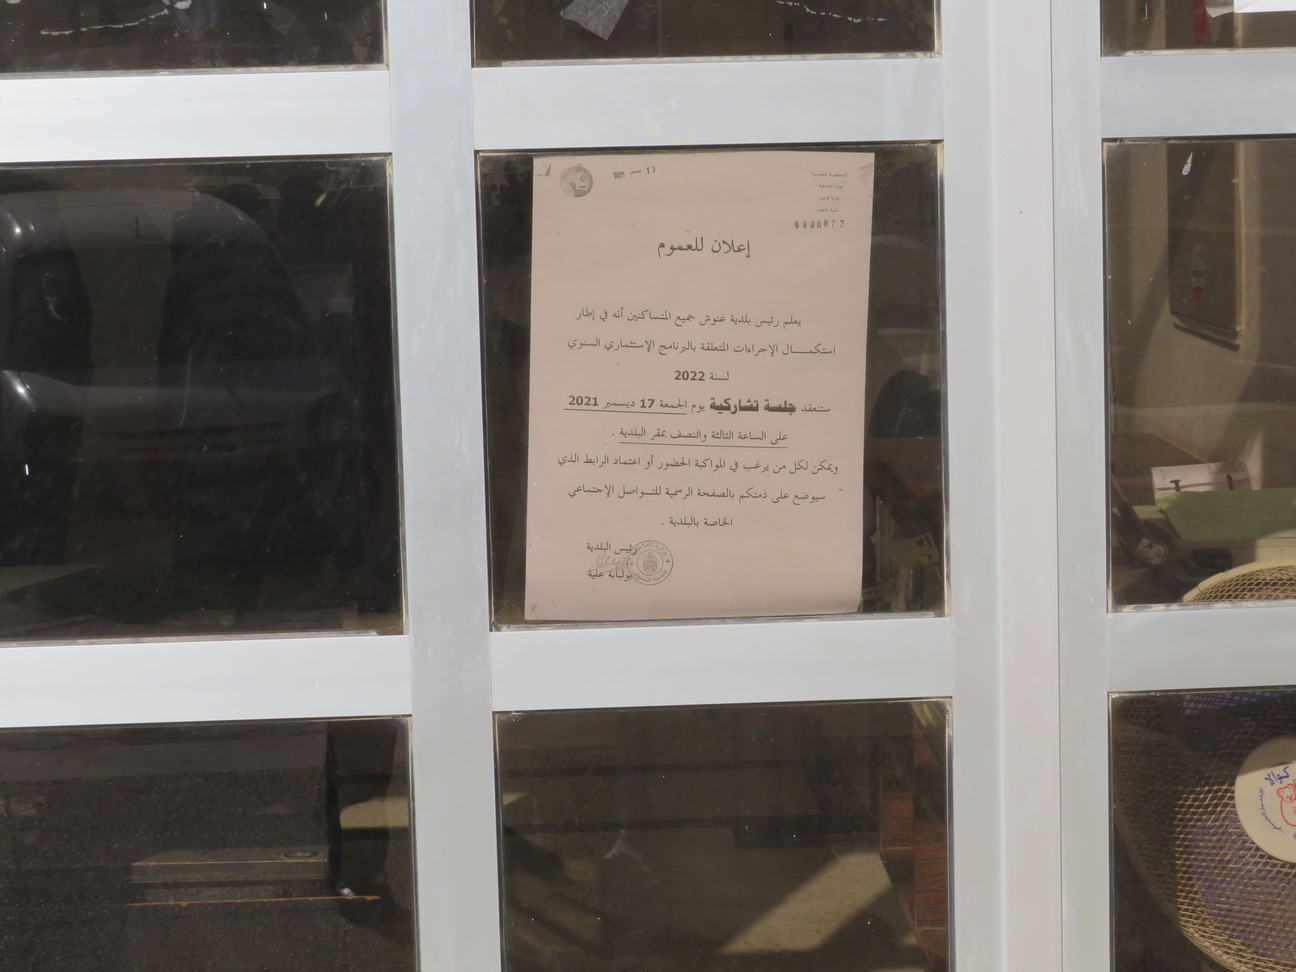 الجمهورية التونسية
وزارة الداخلية
13 ديسمبر 2021
0000877
إعلان للعموم
يعلم رئيس بلدية غنوش جميع المتساكنين أنه في إطار
استكمــــال الإجراءات المتعلقة بالبرنامج الإستثماري السنوي
لسنة 2022
ستنعقد جلسة تشاركية يوم الجمعة 17 ديسمبر 2021
على الساعة الثالثة والنصف بمقر البلدية .
ويمكن لكل من يرغب في المواكبة الحضور أو اعتماد الرابط الذي
سيوضع على ذمتكم بالصفحة الرسمية للتــواصل الإجتماعي
الخاصة بالبلدية .
رئيس البلدية
بولبابة علية